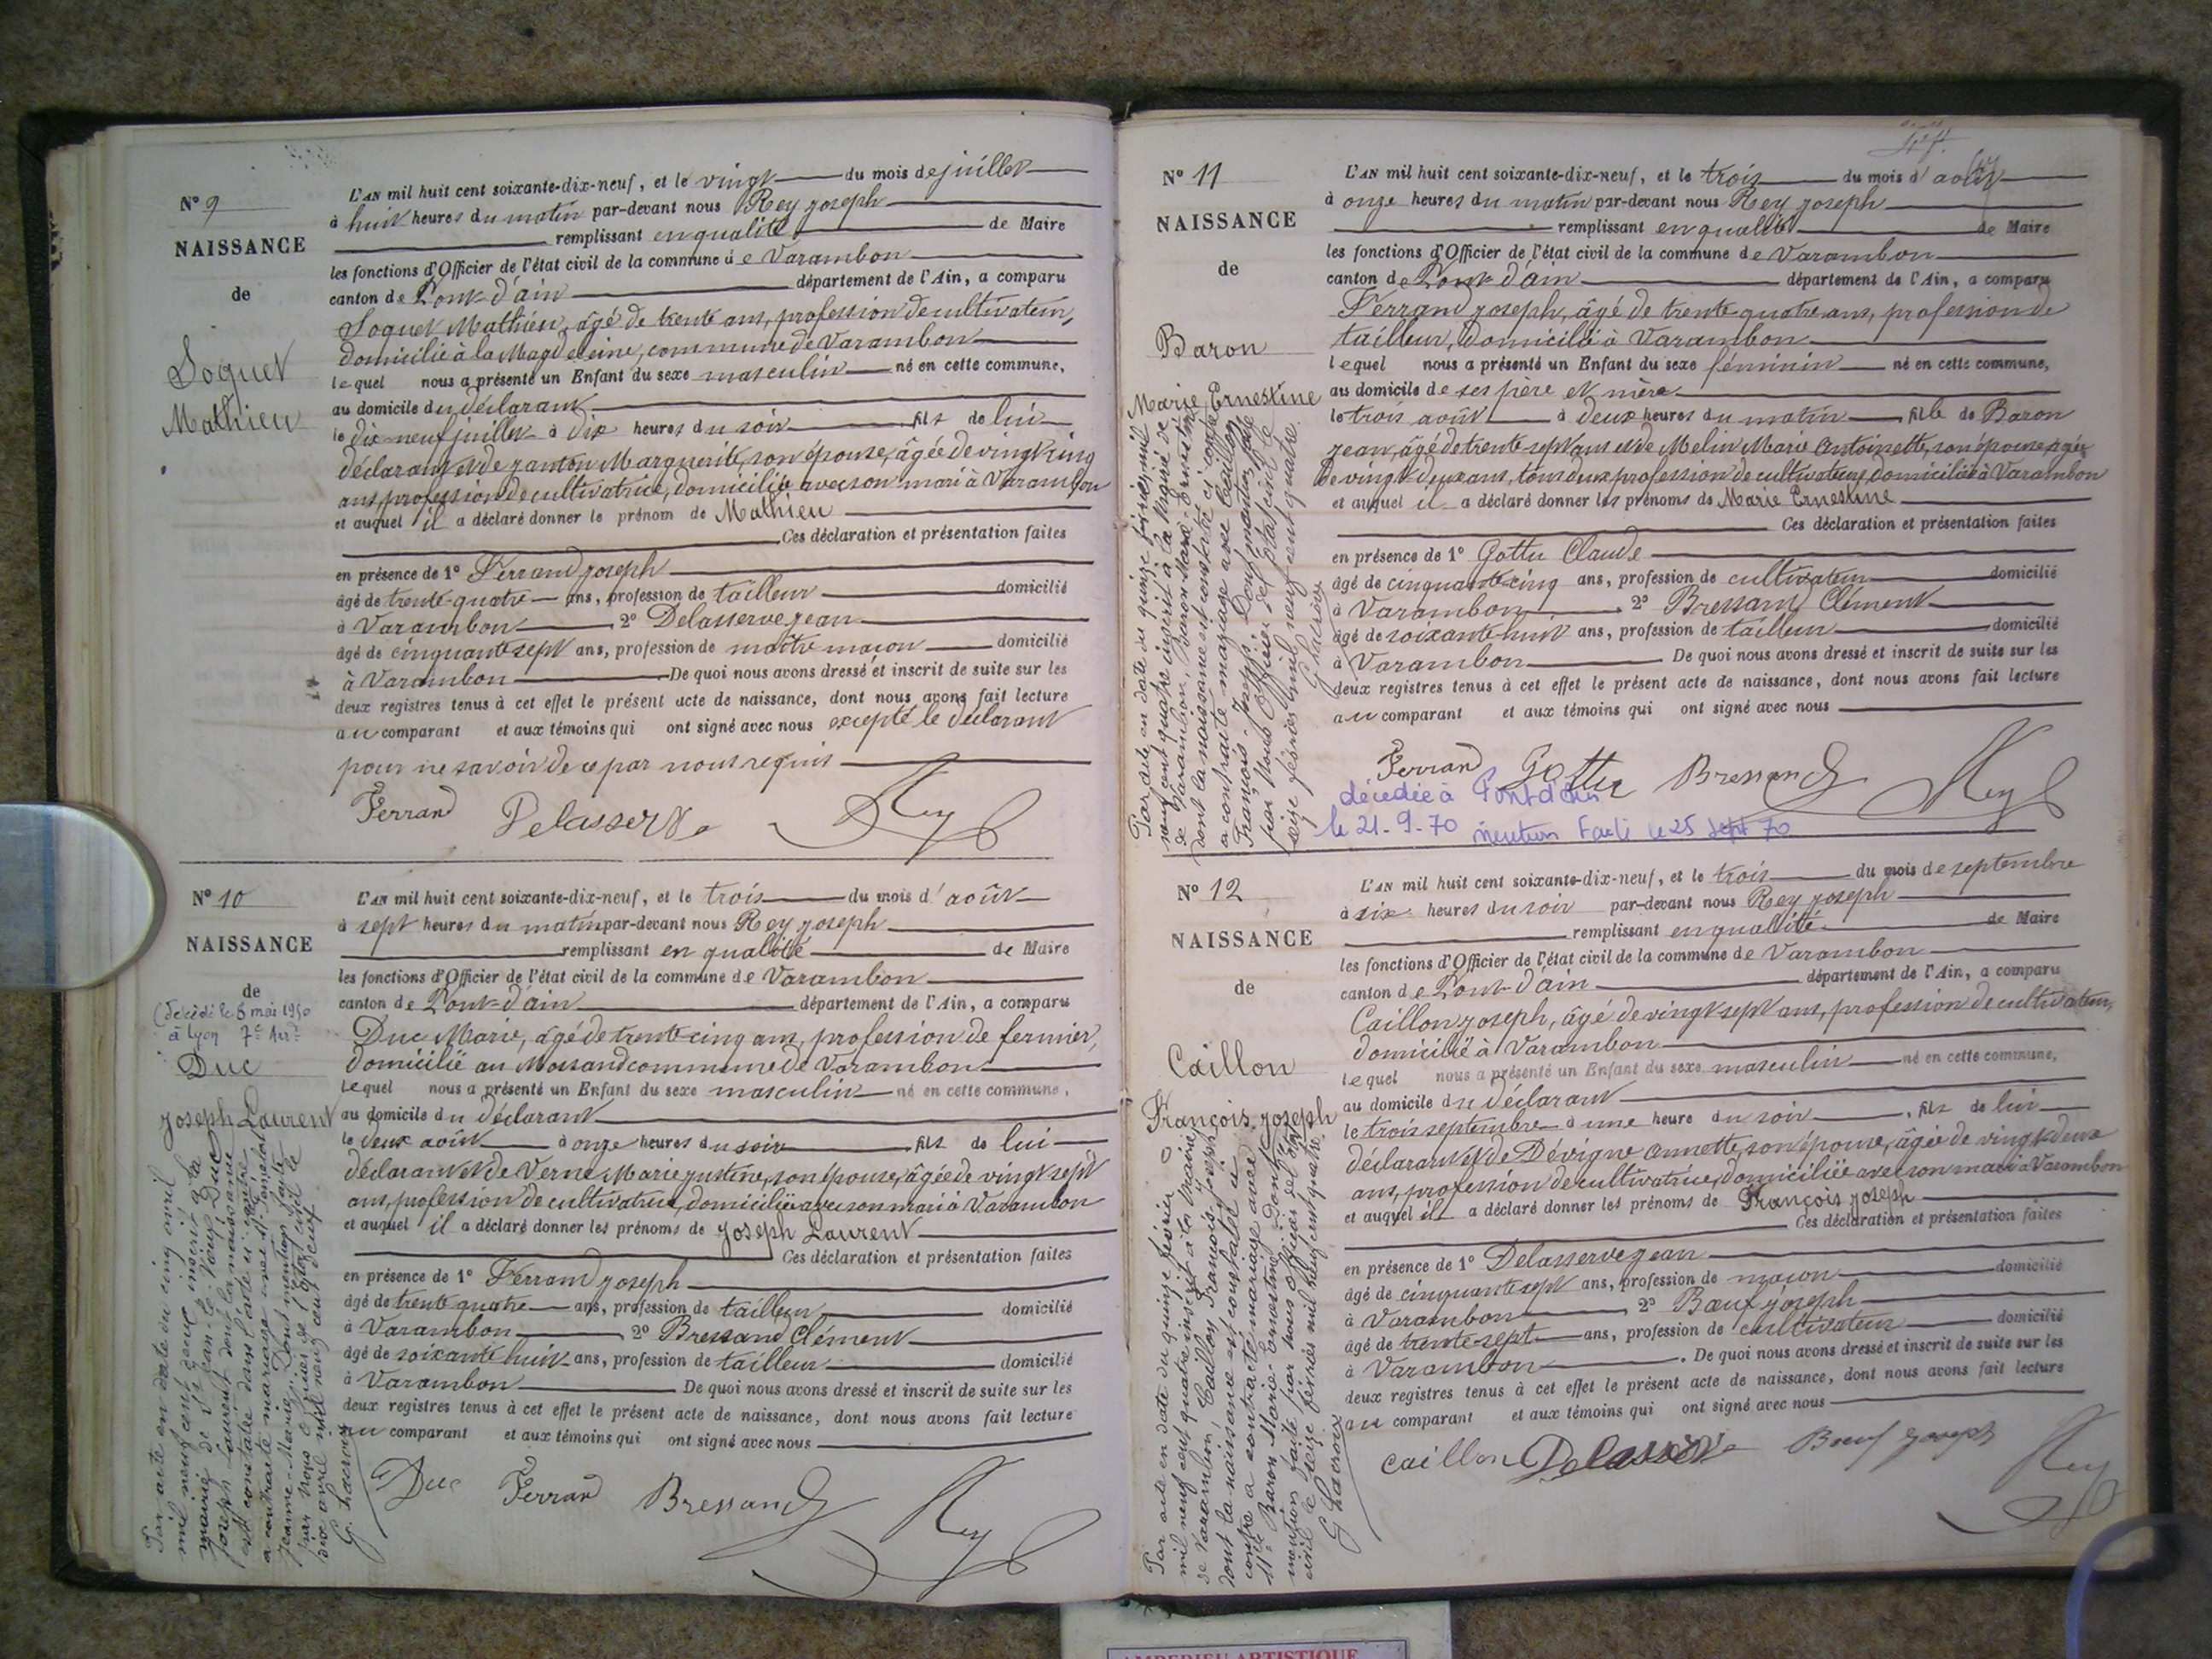 N° 9
NAISSANCE
de
Soquet
Mathieu
L'AN mil huit cent soixante-dix-neuf, et le vingt du mois de juillet
à huit heures du matin par-devant nous Rey joseph
remplissant en qualité de Maire
les fonctions d'Officier de l'état civil de la commune de Varambon
canton de Pont-d'ain département de l'Ain, a comparu
Soquet Mathieu, âgé de trente ans, profession de cultivateur,
domicilié à la Magdeleine, commune de Varambon
lequel nous a présenté un Enfant du sexe masculin né en cette commune,
au domicile du déclarant
le dix-neuf juillet à dix heures du soir fils de lui
déclarant et de janton Marguerite, son épouse, âgée de vingt cinq
ans, profession de cultivatrice, domiciliée avec son mari à Varambon
et auquel il a déclaré donner le prénom de Mathieu
Ces déclaration et présentation faites
en présence de 1° Ferrand joseph
âgé de trente-quatre ans, profession de tailleur domicilié
à Varambon 2° Delasserve jean
âgé de cinquante sept ans, profession de maître maçon domicilié
à Varambon De quoi nous avons dressé et inscrit de suite sur les
deux registres tenus à cet effet le présent acte de naissance, dont nous avons fait lecture
au comparant et aux témoins qui ont signé avec nous excepté le déclarant
pour ne savoir de ce par nous requis
Ferrand Delasserve Rey
N° 10
NAISSANCE
de
(décédé le 6 mai 1950
à Lyon 7e Arrt
Duc
Joseph Laurent
Par acte en date du cinq avril
mil neuf cent deux inscrit à la
mairie de St jean-le-Vieux Duc
joseph Laurent dont la naissance
est constatée dans l'acte ci-contre
a contracté mariage avec
Jeanne-Marie. Dont mention faite
par nous officier de l'état civil le
dix avril mil neuf cent deux
G. Lacroix
L'AN mil huit cent soixante-dix-neuf, et le trois du mois d'août
à sept heures du matin par-devant nous Rey joseph
remplissant en qualité de Maire
les fonctions d'Officier de l'état civil de la commune de Varambon
canton de Pont-d'ain département de l'Ain, a comparu
Duc Marie, âgé de trente-cinq ans, profession de fermier,
domicilié au Mossand commune de Varambon
lequel nous a présenté un Enfant du sexe masculin né en cette commune,
au domicile du déclarant
le deux août à onze heures du soir fils de lui
déclarant et de Verne Marie justine, son épouse, âgée de vingt sept
ans, profession de cultivatrice, domiciliée avec son mari à Varambon
et auquel il a déclaré donner les prénoms de joseph Laurent
Ces déclaration et présentation faites
en présence de 1° Ferrand joseph
âgé de trente quatre ans, profession de tailleur domicilié
à Varambon 2° Bressand Clément
âgé de soixante huit ans, profession de tailleur domicilié
à Varambon De quoi nous avons dressé et inscrit de suite sur les
deux registres tenus à cet effet le présent acte de naissance, dont nous avons fait lecture
au comparant et aux témoins qui ont signé avec nous
Duc Ferrand Bressand Rey
N° 11
NAISSANCE
de
Baron
Marie Ernestine
Par acte en date du quinze février mil
neuf cent quatre inscrit à la Mairie de
de Varambon, Baron Marie Ernestine
dont la naissance est constatée ci contre
a contracté mariage avec Caillon
François-Joseph. Dont mention faite
par Nous Officier de l'état civil le
seize février mil neuf cent quatre.
G Lacroix
L'AN mil huit cent soixante-dix-neuf, et le trois du mois d'août
à onze heures du matin par-devant nous Rey joseph
remplissant en qualité de Maire
les fonctions d'Officier de l'état civil de la commune de Varambon
canton de Pont-d'ain département de l'Ain, a comparu
Ferrand joseph, âgé de trente-quatre ans, profession de
tailleur, domicilié à Varambon
lequel nous a présenté un Enfant du sexe féminin né en cette commune,
au domicile de ses père et mère
le trois août à deux heures du matin fille de Baron
jean, âgé de trente sept ans et de Melin Marie Antoinette, son épouse, âgée
de vingt-deux ans, tous deux profession de cultivateurs, domiciliés à Varambon
et auquel il a déclaré donner les prénoms de Marie Ernestine
Ces déclaration et présentation faites
en présence de 1° Gottu Claude
âgé de cinquante-cinq ans, profession de cultivateur domicilié
à Varambon 2° Bressand Clément
âgé de soixante-huit ans, profession de tailleur domicilié
à Varambon De quoi nous avons dressé et inscrit de suite sur les
deux registres tenus à cet effet le présent acte de naissance, dont nous avons fait lecture
au comparant et aux témoins qui ont signé avec nous
Ferrand Gottu Bressand Rey
décédée à Pont d'Ain
le 21-9-70 mention faite le 25 sept 70
N° 12
NAISSANCE
de
Caillon
François joseph
Par acte en date du quinze février
mil neuf cent quatre inscrit à la Mairie
de Varambon, Caillon François joseph
dont la naissance est constatée ci
contre a contracté mariage avec
Mlle Baron Marie-Ernestine. Dont
mention faite par nous officier de l'état
civil le seize février mil neuf cent quatre.
G Lacroix
L'AN mil huit cent soixante-dix-neuf, et le trois du mois de septembre
à six heures du soir par-devant nous Rey joseph
remplissant en qualité de Maire
les fonctions d'Officier de l'état civil de la commune de Varambon
canton de Pont-d'ain département de l'Ain, a comparu
Caillon joseph, âgé de vingt sept ans, profession de cultivateur,
domicilié à Varambon
lequel nous a présenté un Enfant du sexe masculin né en cette commune,
au domicile du déclarant
le trois septembre à une heure du soir, fils de lui
déclarant et de Dévigne Annette, son épouse, âgée de vingt deux
ans, profession de cultivatrice, domiciliée avec son mari à Varambon
et auquel il a déclaré donner les prénoms de François joseph
Ces déclaration et présentation faites
en présence de 1° Delasserve jean
âgé de cinquante sept ans, profession de maçon domicilié
à Varambon 2° Bœuf joseph
âgé de trente-sept ans, profession de cultivateur domicilié
à Varambon. De quoi nous avons dressé et inscrit de suite sur les
deux registres tenus à cet effet le présent acte de naissance, dont nous avons fait lecture
au comparant et aux témoins qui ont signé avec nous
Caillon Delasserve Bœuf joseph Rey